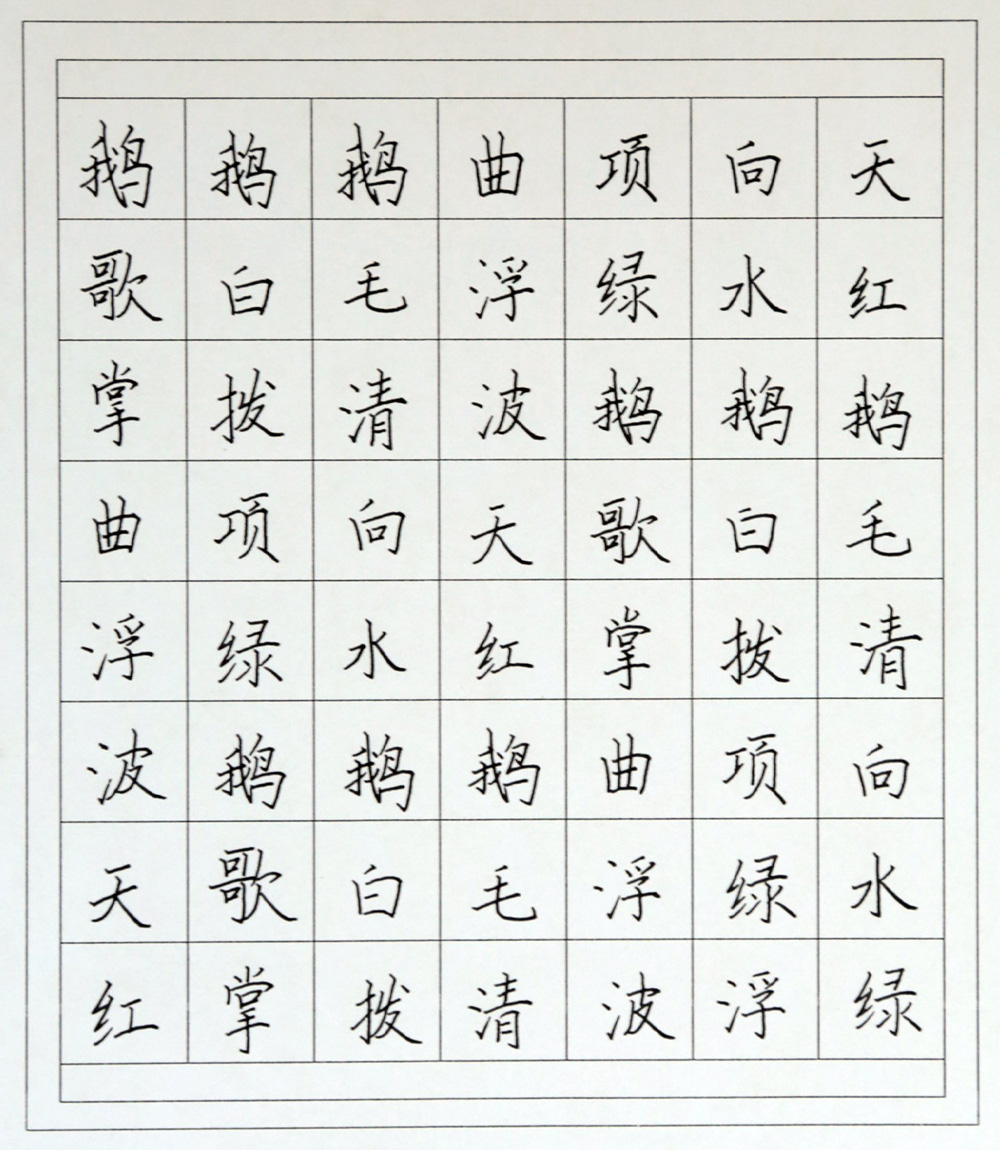 鹅鹅鹅曲项向天
歌白毛浮绿水红
掌拨清波鹅鹅鹅
曲项向天歌白毛
浮绿水红掌拨清
波鹅鹅鹅曲项向
天歌白毛浮绿水
红掌拨清波浮绿